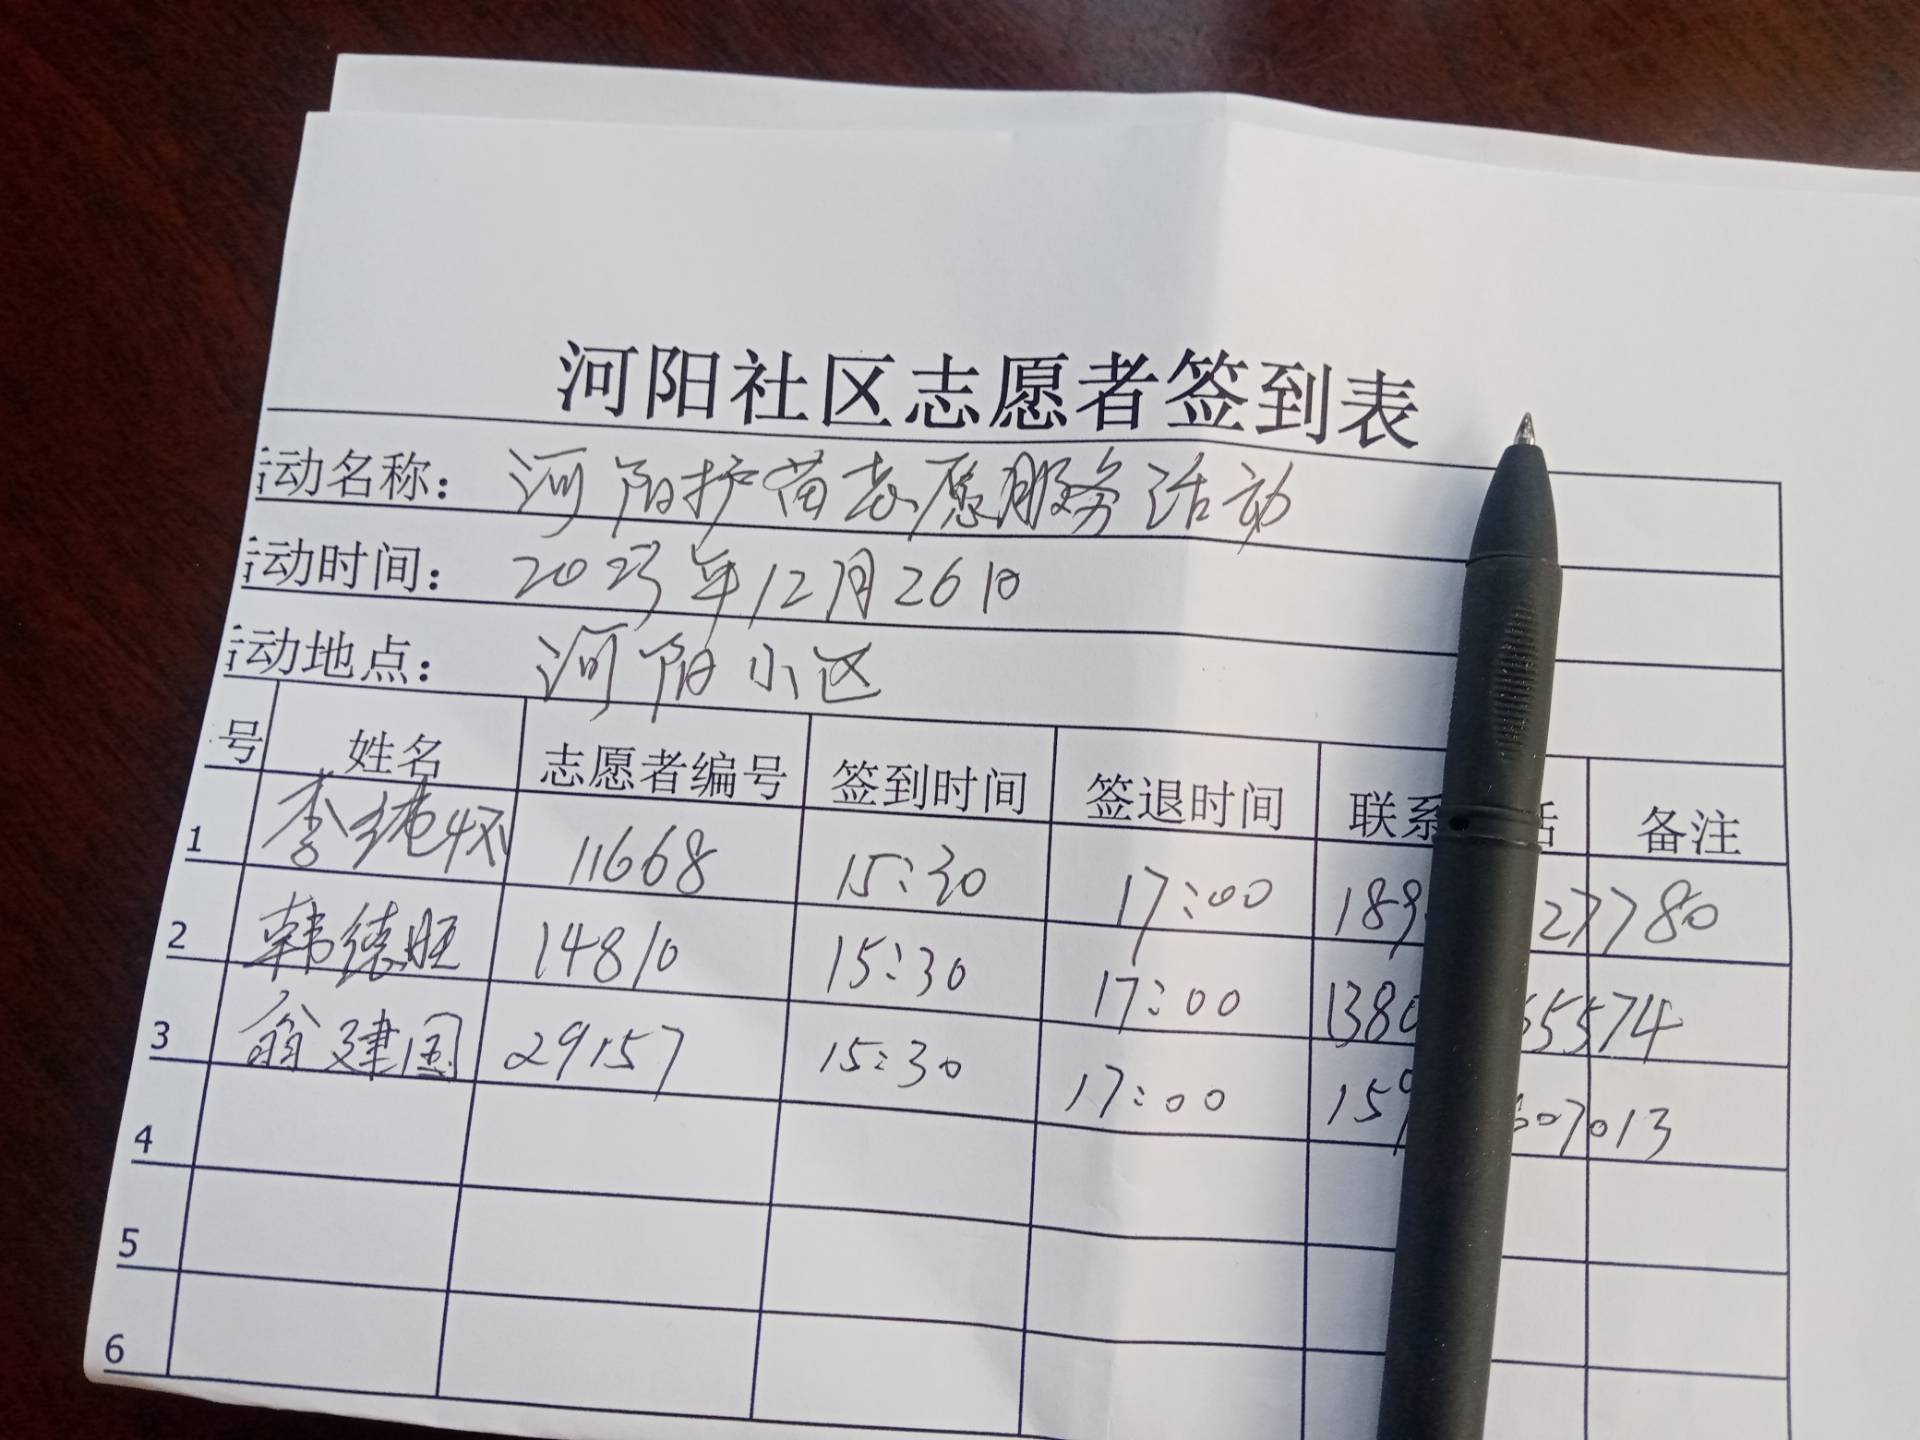 河阳社区志愿者签到表
活动名称： 河阳护苗志愿服务活动
活动时间： 2023年12月26日
活动地点： 河阳小区
号 姓名 志愿者编号 签到时间 签退时间 联系 话 备注
1 李纯怀 11668 15:30 17:00 189 27780
2 韩德旺 14810 15:30 17:00 1380 55574
3 翁建国 29157 15:30 17:00 159 07013
4
5
6